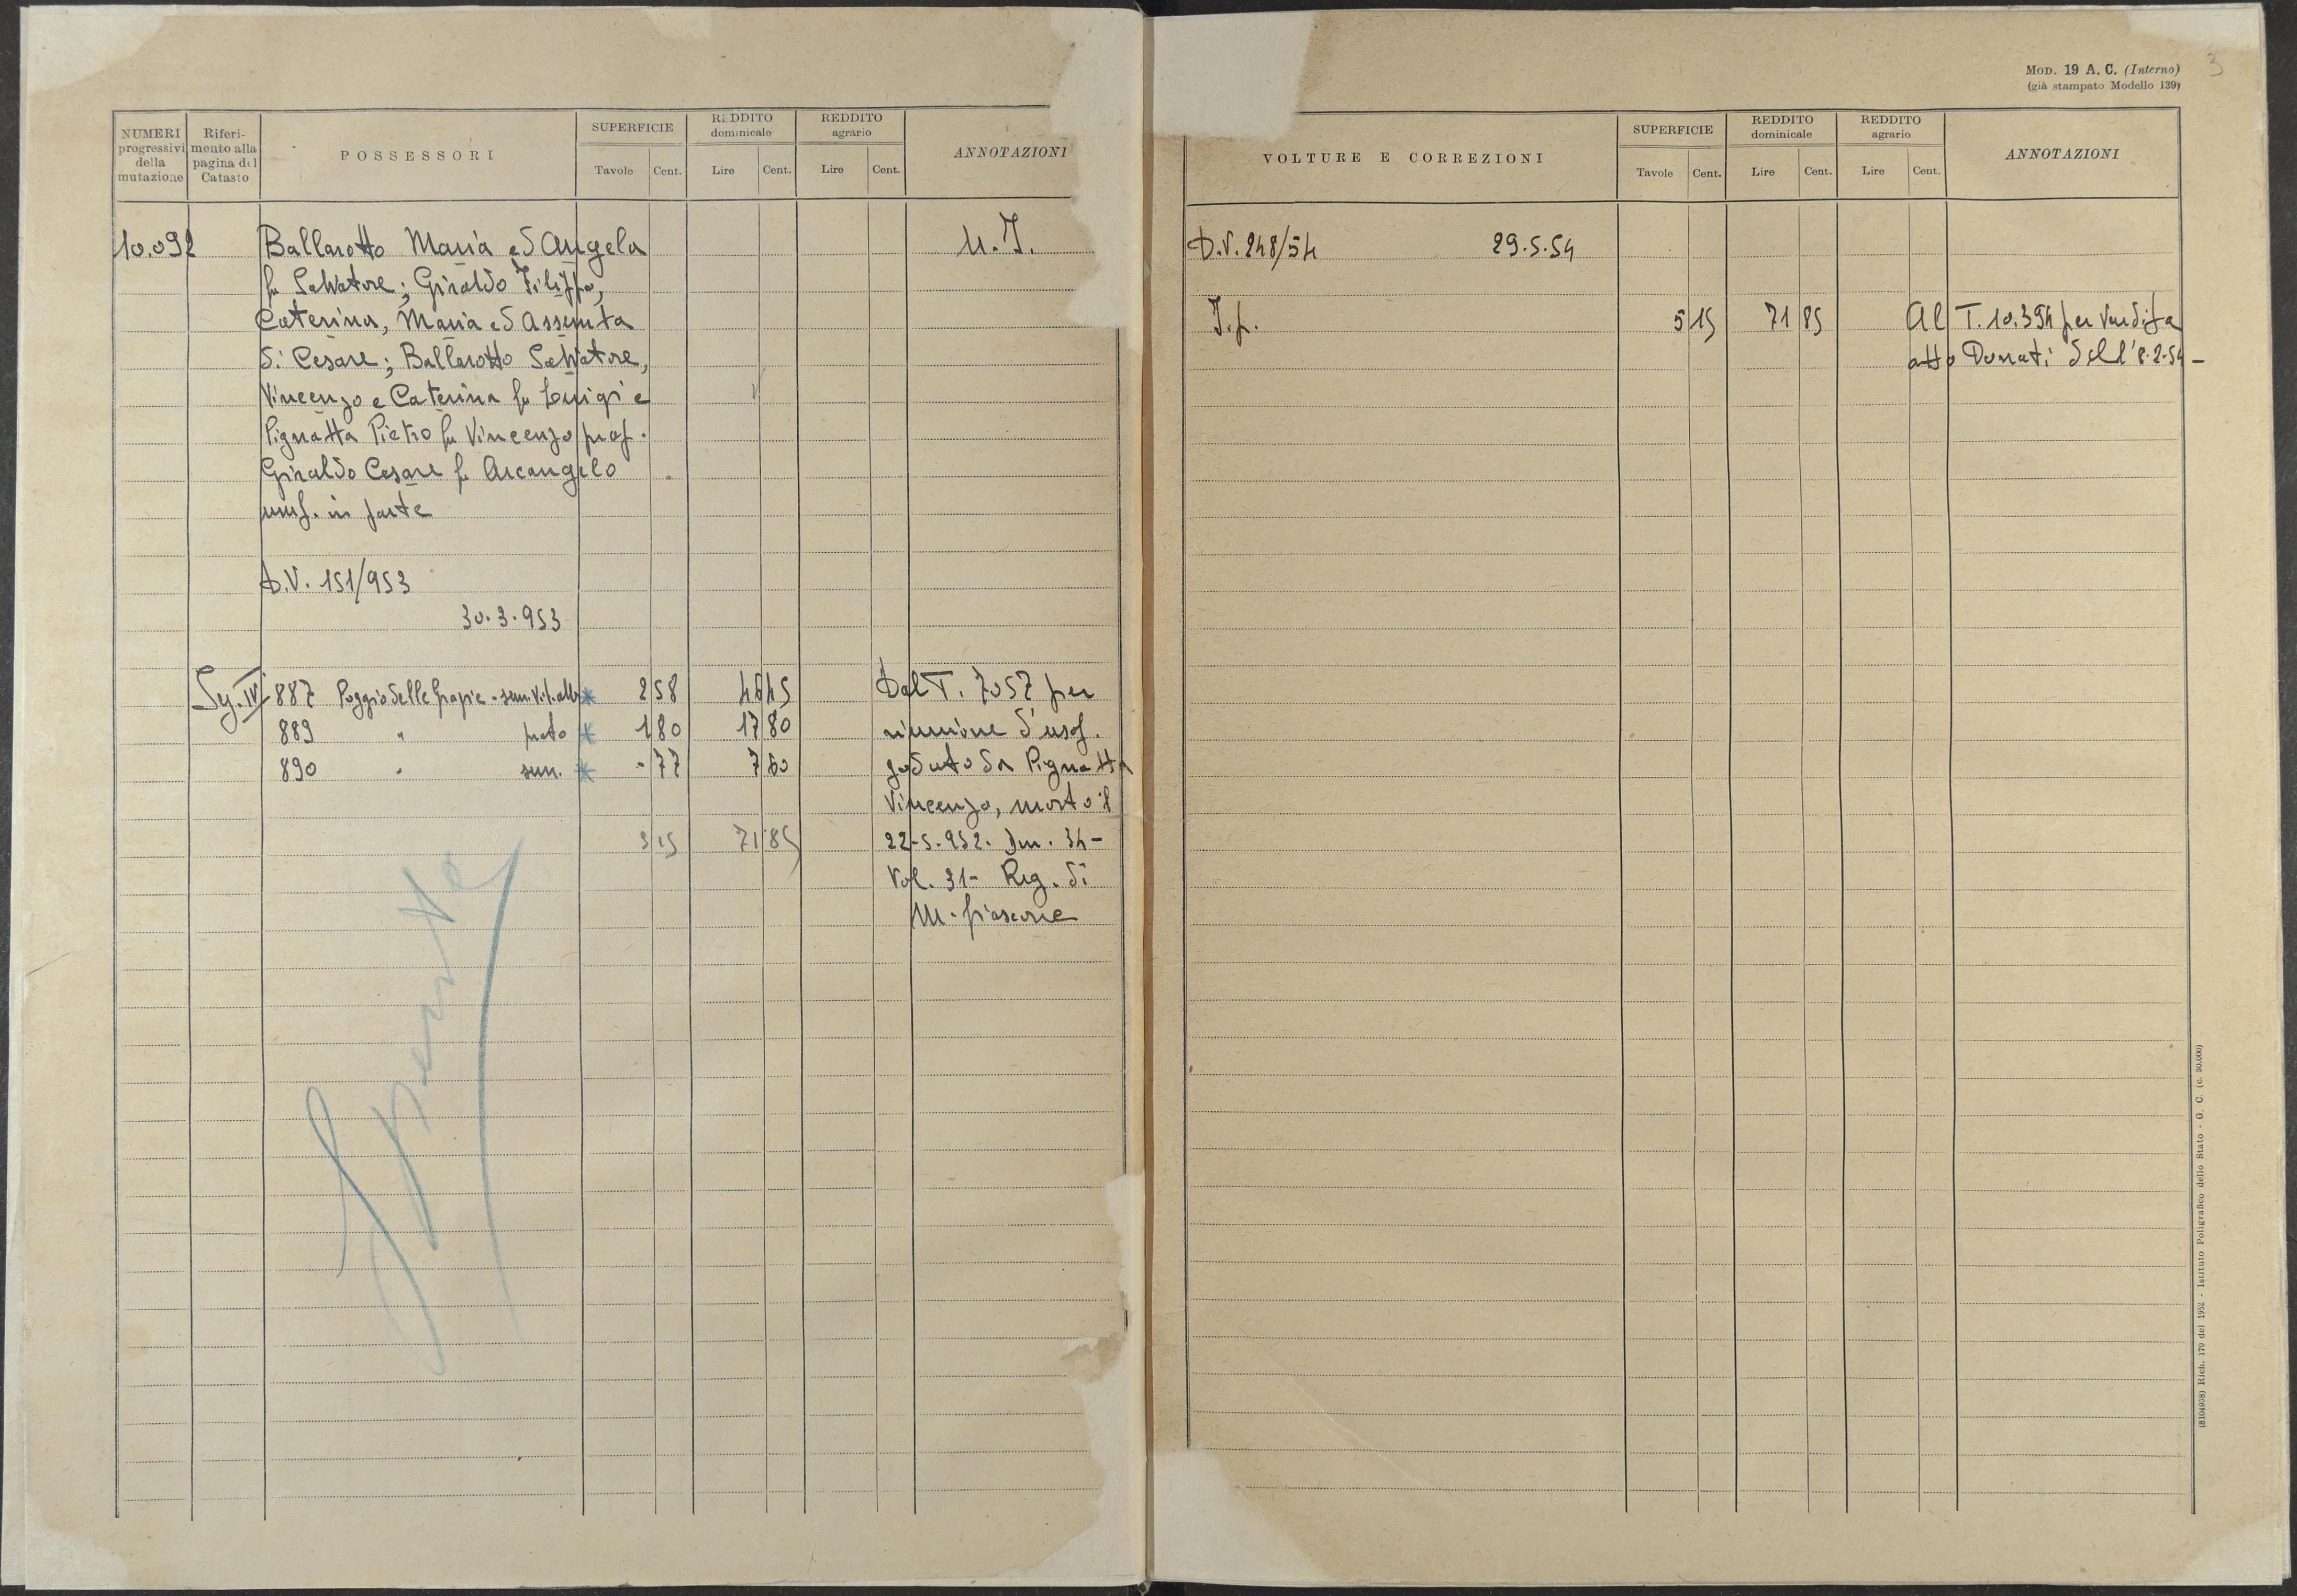 NUMERI progressivi della mutazione
Riferimento alla pagina del Catasto
POSSESSORI
SUPERFICIE
Tavole Cent.
REDDITO dominicale
Lire Cent.
REDDITO agrario
Lire Cent.
ANNOTAZIONI
10.092 Ballarotto Maria ed Angela M.F.
fu Salvatore; Giraldo Filippo,
Caterina, Maria ed Assunta
di Cesare; Ballarotto Salvatore,
Vincenzo e Caterina fu Luigi e
Pignatta Pietro fu Vincenzo prop.
Giraldo Cesare fu Arcangelo
usuf. in parte
D.V. 151/953
30.3.953
Sez. IV 887 Poggio delle Grazie - sem. vit. alb. * 2 58 46 45 Dal T. 7057 per
889 " prato * 1 80 17 80 riunione d'usuf.
890 " sem. * - 77 7 60 goduto da Pignatta
Vincenzo, morto il
5 15 71 85 22-5-952. Den. 34-
Vol. 31- Reg. di
M. fiascone
Spenta
3
MOD. 19 A. C. (Interno)
(già stampato Modello 139)
VOLTURE E CORREZIONI
SUPERFICIE
Tavole Cent.
REDDITO dominicale
Lire Cent.
REDDITO agrario
Lire Cent.
ANNOTAZIONI
D.V. 248/54 29.5.54
I.p. 5 15 71 85 Al T. 10.394 per vendita
atto Donati dell'8.2.54-
(8104958) Rich. 179 del 1952 - Istituto Poligrafico dello Stato - G. C. (c. 30.000)